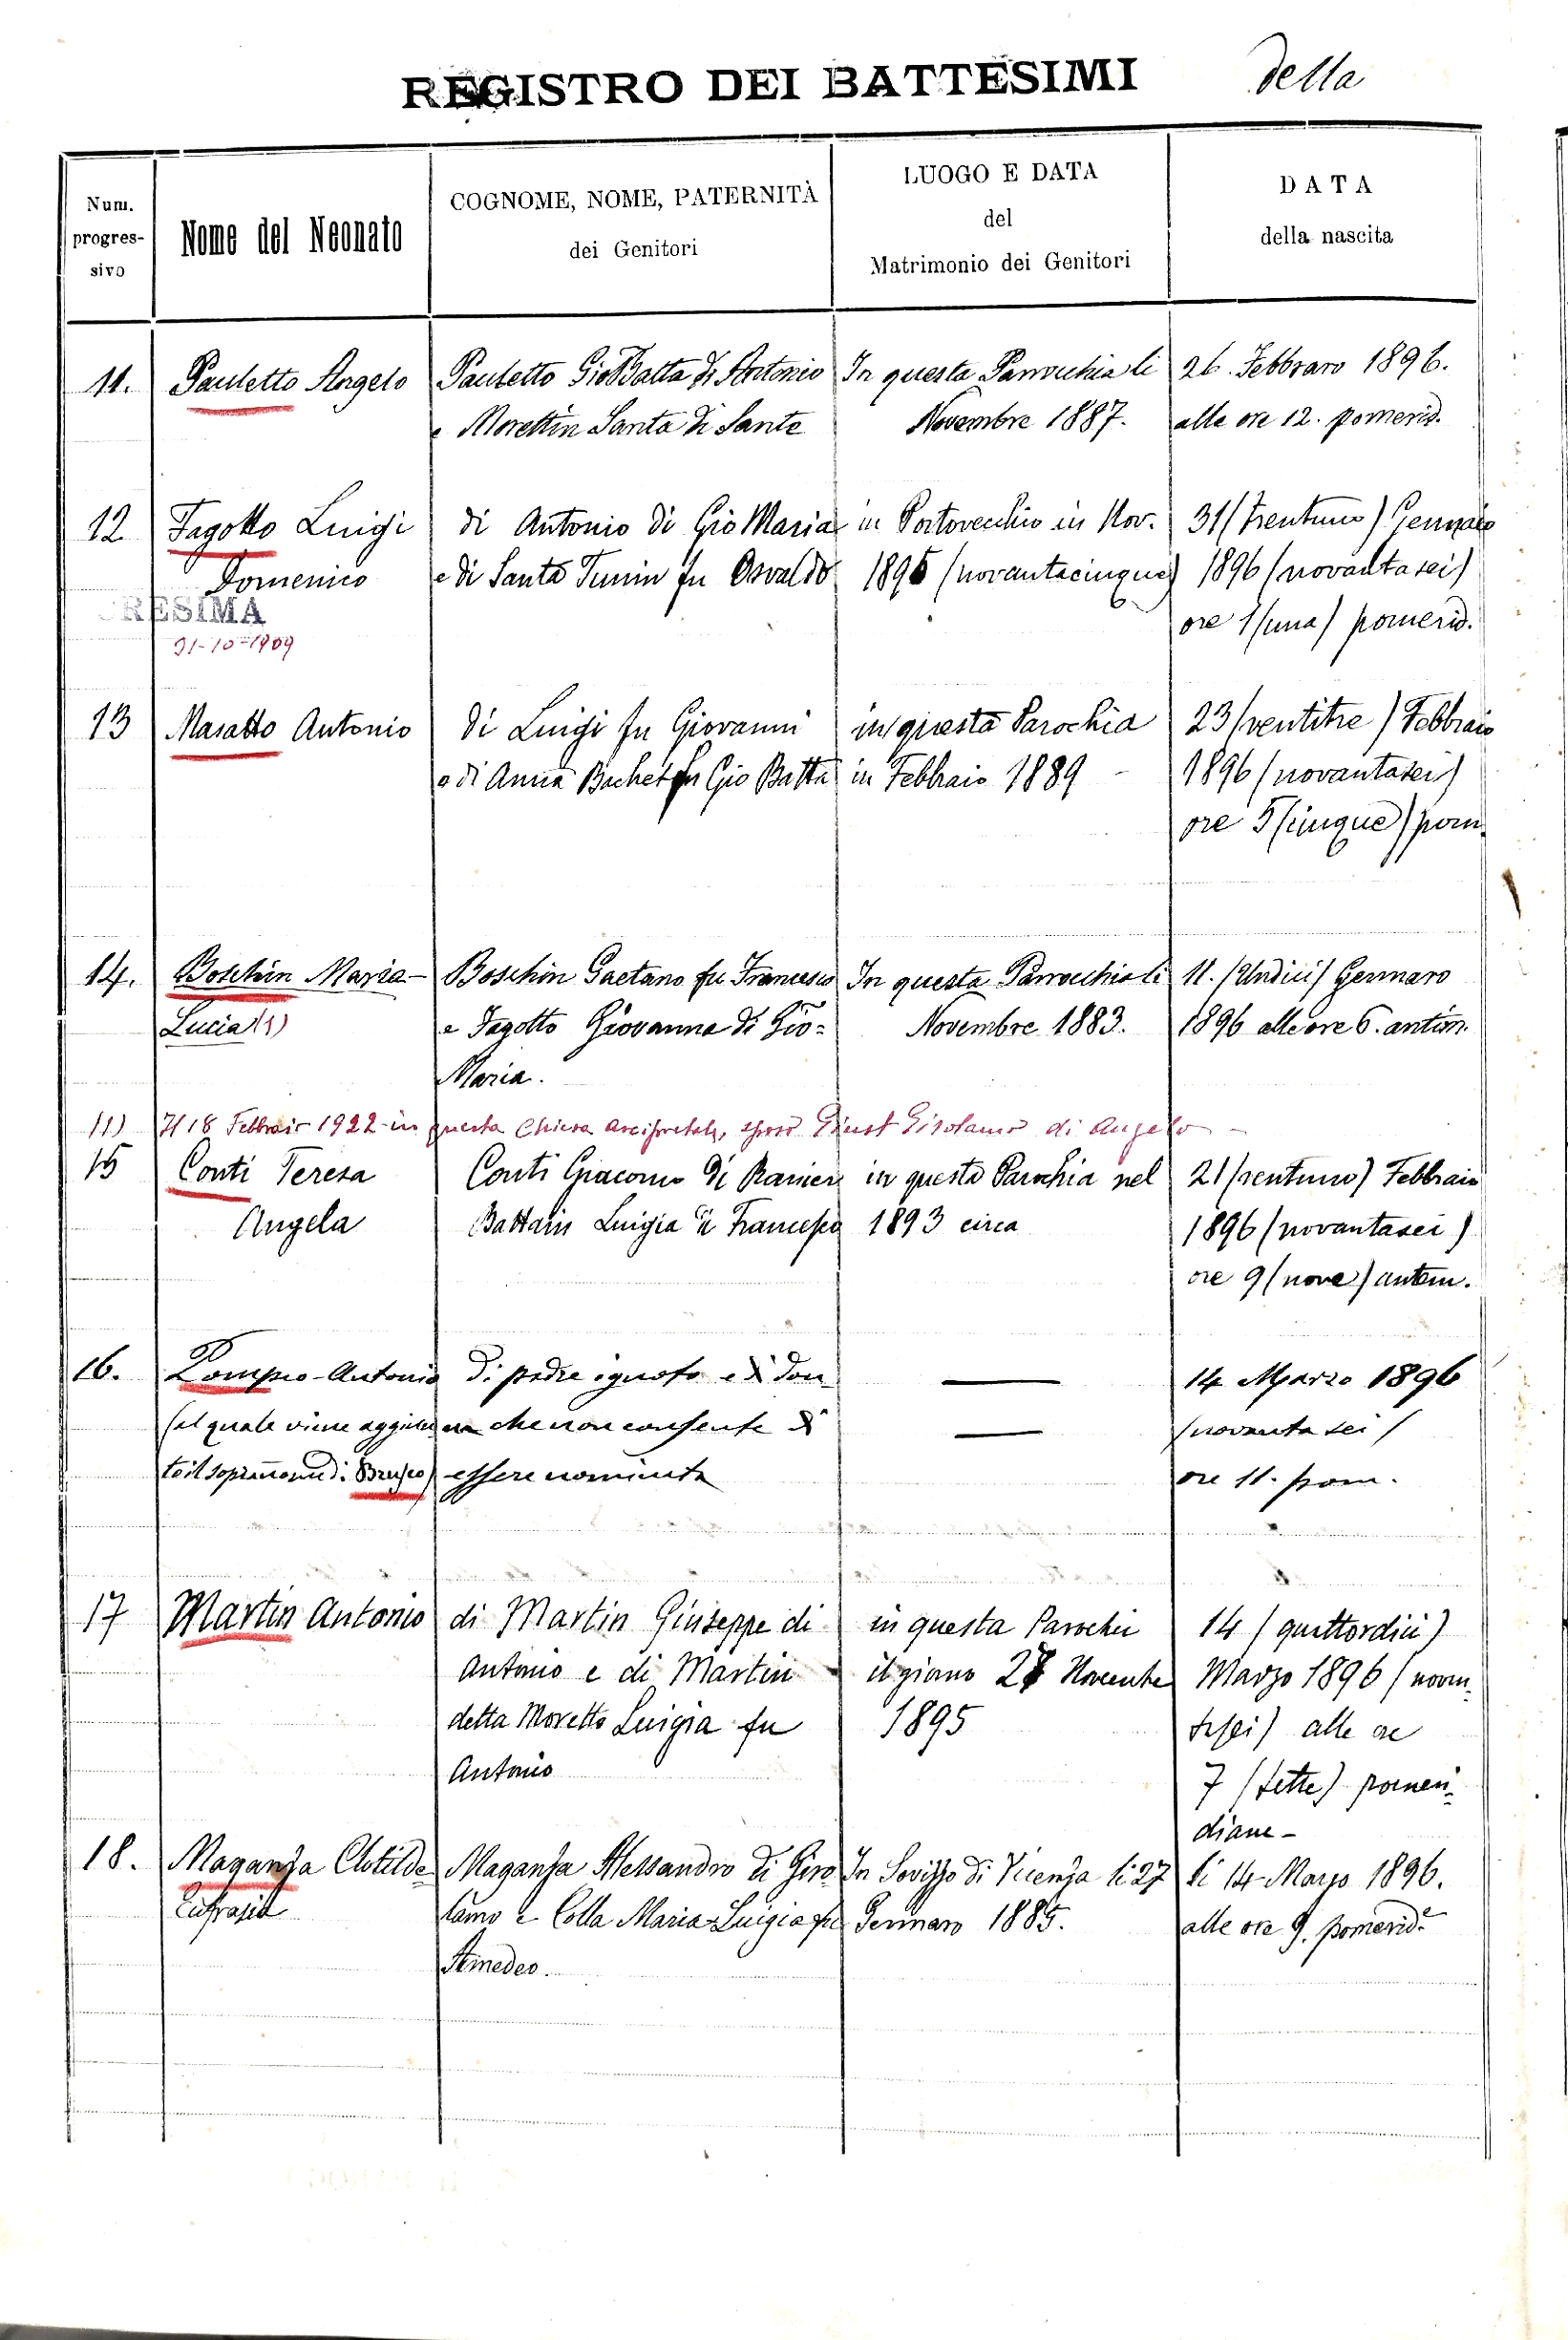 REGISTRO DEI BATTESIMI della
Num.
progres-
sivo
Nome del Neonato
COGNOME, NOME, PATERNITÀ
dei Genitori
LUOGO E DATA
del
Matrimonio dei Genitori
DATA
della nascita
11. Pauletto Angelo Pauletto GioBatta di Antonio In questa Parrocchia li 26. Febbraro 1896.
e Morettin Santa di Sante Novembre 1887. alle ore 12. pomerid.
12 Fagotto Luigi di Antonio di Gio Maria in Portovecchio in Nov. 31 (trentuno) Gennaio
Domenico e di Santa Tunin fu Osvaldo 1895 (novantacinque) 1896 (novantasei)
CRESIMA ore 1 (una) pomerid.
31-10-1909
13 Masatto Antonio di Luigi fu Giovanni in questa Parochia 23 (ventitre) Febbraio
e di Anna Bachet fu Gio Batta in Febbraio 1889 - 1896 (novantasei)
ore 5 (cinque) pom.
14. Boschin Maria- Boschin Gaetano fu Francesco In questa Parrocchia li 11. (Undici) Gennaro
Lucia (1) e Fagotto Giovanna di Gio= Novembre 1883. 1896 alle ore 6. antim.
Maria.
(1) Il 18 Febbraio 1922 in questa Chiesa Arcipretale, sposò Giust Girolamo di Angelo -
15 Conti Teresa Conti Giacomo di Ranier in questa Parochia nel 21 (ventuno) Febbraio
Angela Battain Luigia di Francesco 1893 circa 1896 (novantasei)
ore 9 (nove) antem.
16. Pompeo-Antonio Di padre ignoto e di don 14 Marzo 1896
(al quale viene aggiun na che non consente di (novanta sei)
to il soprannome di Brusco) essere nominata ore 11. pom.
17 Martin Antonio di Martin Giuseppe di in questa Parochia 14 (quattordici)
Antonio e di Martin il giorno 27 Novembre Marzo 1896 (novan=
detta Moretto Luigia fu 1895 tasei) alle ore
Antonio 7 (sette) pomeri=
diane-
18. Maganza Clotilde Maganza Alessandro di Giro In Sovizzo di Vicenza li 27 li 14 Marzo 1896.
Eufrasia lamo e Colla Maria-Luigia fu Gennaro 1885. alle ore 9. pomeride
Amedeo.